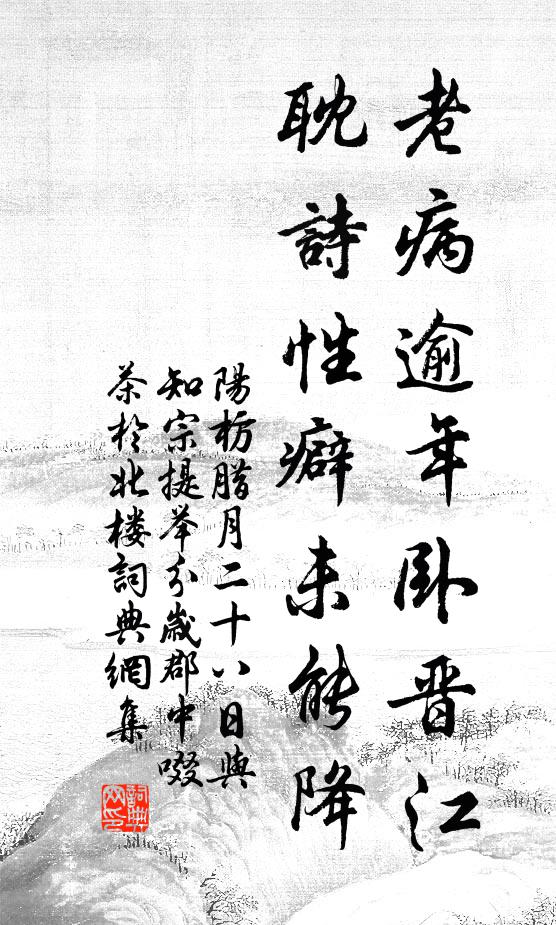 老病逾年卧晋江
耽詩性癖未能降
陽枋臘月二十八日與
知宗提举分歲郡中啜
茶於北楼詞典網集